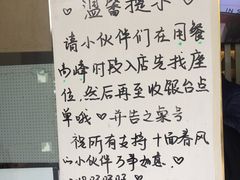 温馨提示
请小伙伴们在用餐
高峰时段入店先找座
位,然后再至收银台点
单哦♡ 并告之桌号
祝所有支持十里春风
的小伙伴万事如意.♡